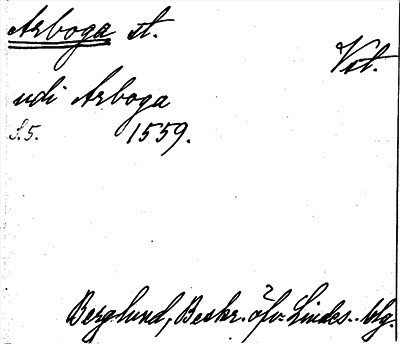 Arboga st.
Vst.
udi Arboga
S. 5. 1559.
Berglund, Beskr. öfv. Lindes.-blg.